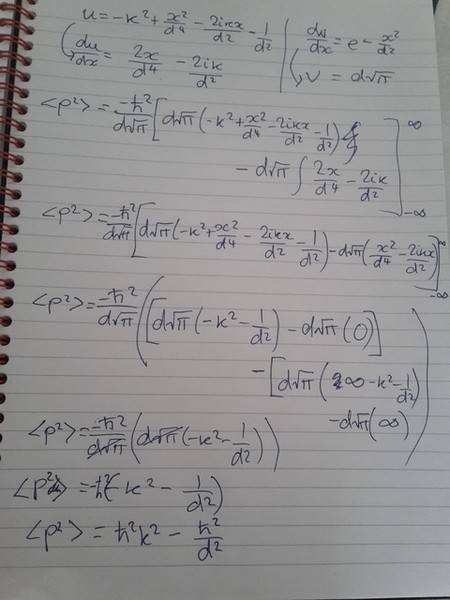 u = -k² + x²/d⁴ - 2ikx/d² - 1/d² | dv/dx = e - x²/d²
du/dx = 2x/d⁴ - 2ik/d² | v = d√π
<p²> = -ħ²/d√π [d√π(-k² + x²/d⁴ - 2ikx/d² - 1/d²)
- d√π ∫ 2x/d⁴ - 2ik/d²]^∞_-∞
<p²> = -ħ²/d√π [d√π(-k² + x²/d⁴ - 2ikx/d² - 1/d²) - d√π(x²/d⁴ - 2ikx/d²)]^∞_-∞
<p²> = -ħ²/d√π ([d√π(-k² - 1/d²) - d√π(0)]
- [d√π(∞ - k² - 1/d²)
- d√π(∞))
<p²> = -ħ²/d√π (d√π(-k² - 1/d²))
<p²> = -ħ²(-k² - 1/d²)
<p²> = ħ²k² - ħ²/d²